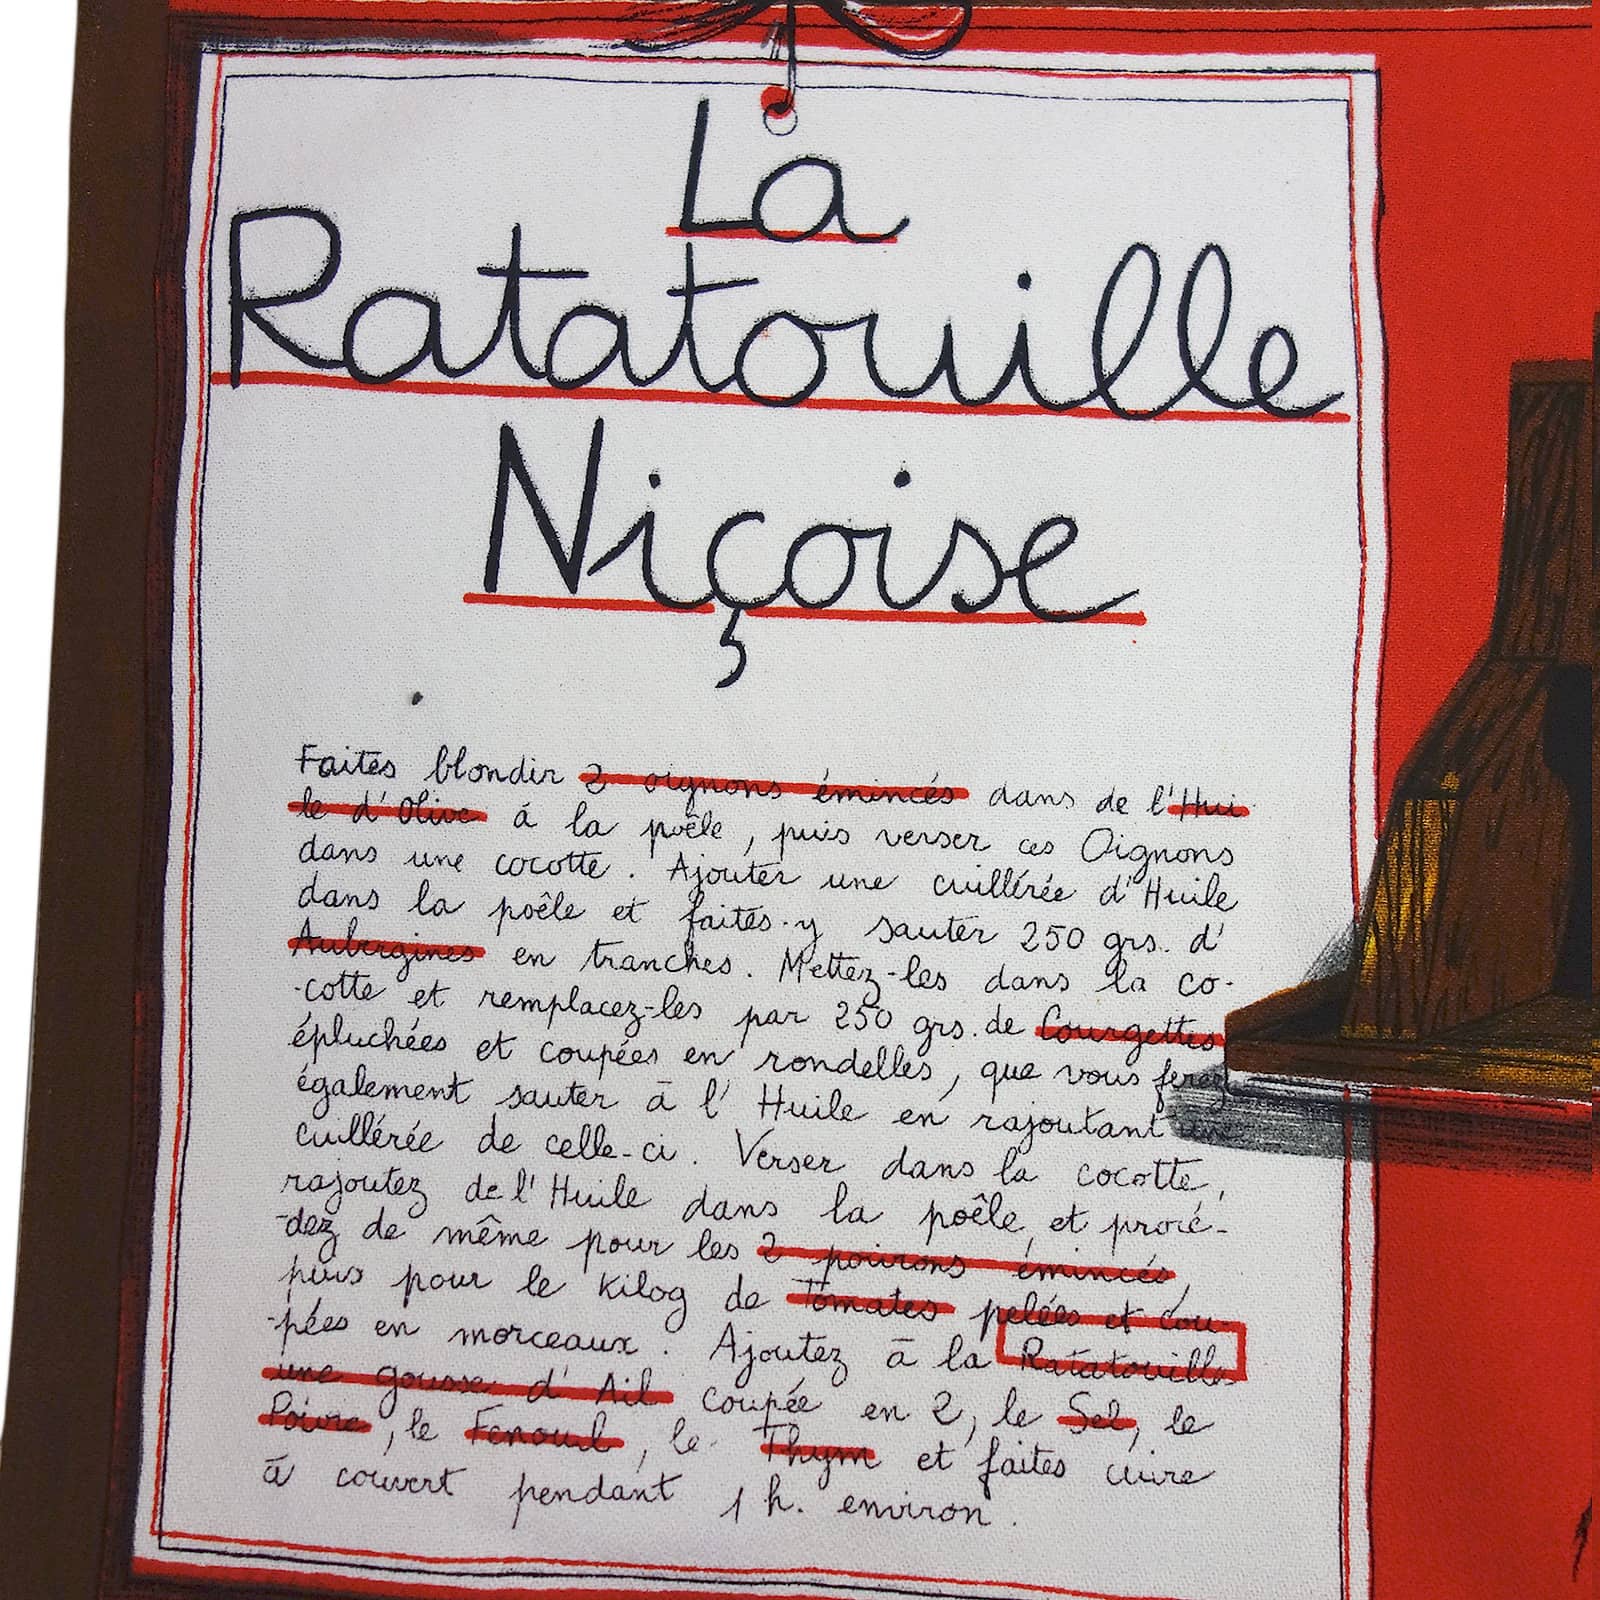 La
Ratatouille
Niçoise
Faites blondir 2 oignons émincés dans de l'Hui
le d'Olive à la poêle, puis verser ces Oignons
dans une cocotte. Ajouter une cuillérée d'Huile
dans la poêle et faites-y sauter 250 grs. d'
Aubergines en tranches. Mettez-les dans la co-
-cotte et remplacez-les par 250 grs. de Courgettes
épluchées et coupées en rondelles, que vous ferez
également sauter à l'Huile en rajoutant une
cuillérée de celle-ci. Verser dans la cocotte,
rajoutez de l'Huile dans la poêle, et procé-
-dez de même pour les 2 poivrons émincés,
puis pour le Kilog de Tomates pelées et cou-
-pées en morceaux. Ajoutez à la Ratatouille
une gousse d'Ail coupée en 2, le Sel, le
Poivre, le Fenouil, le Thym et faites cuire
à couvert pendant 1 h. environ.